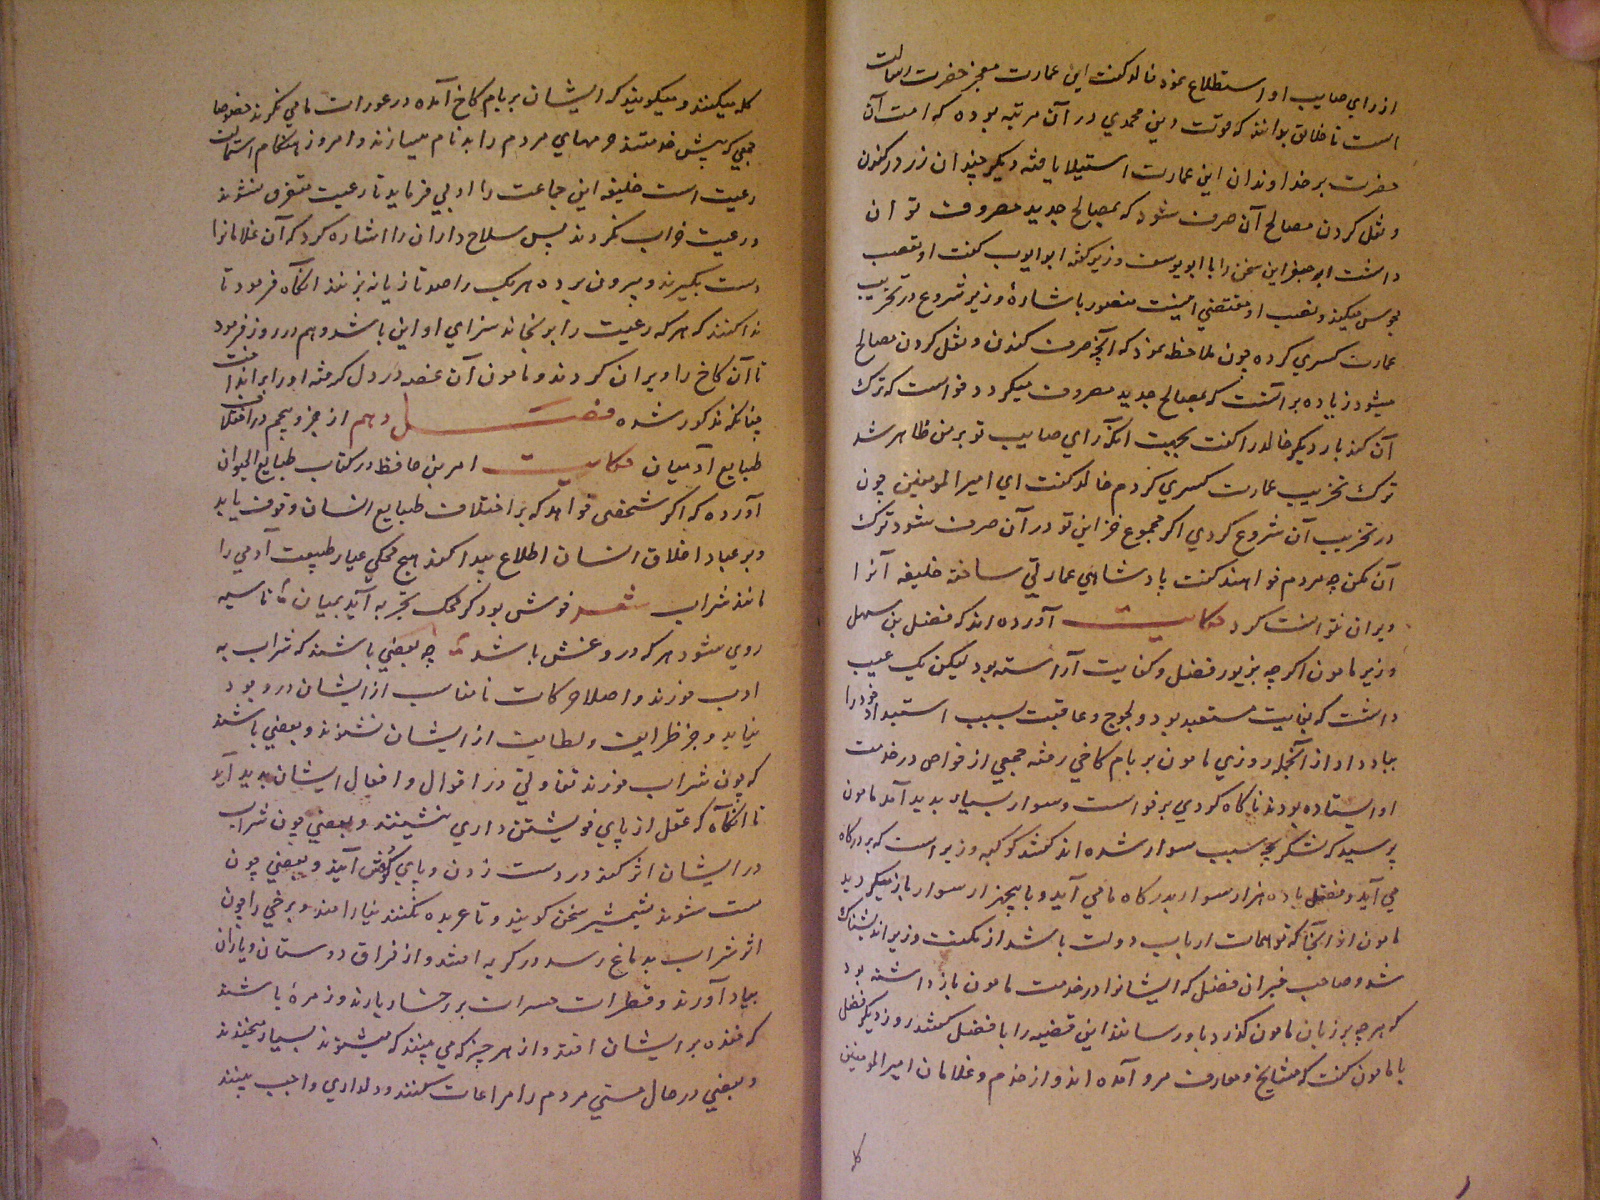 از رای صایب او استطلاع نمود خالد کفت این عمارت معجز حضرت رسالت
است تا خلایق بدانند که قوت دین محمدی در آن مرتبه بوده که امت آن
حضرت بر خداوندان این عمارت استیلا یافته دیکر چندان زر در کندن
و نقل کردن مصالح آن صرف شود که بمصالح جدید مصروف توان
داشت ابو جعفر این سخن را با ابو یوسف وزیر کفته ابو ایوب کفت او تعصب
مجوس میکند و تعصب او مقتضی اینست منصور باشارهٔ وزیر شروع در تخریب
عمارت کسری کرده چون ملاحظه نمود که آنچه صرف کندن و نقل کردن مصالح
میشود زیاده بر آنست که بمصالح جدید مصروف میکردد خواست که ترک
آن کند بار دیکر خالد را کفت بجهت آنکه رای صایب تو بر من ظاهر شد
ترک تخریب عمارت کسری کردم خالد کفت ای امیر المومنین چون
در تخریب آن شروع کردی اکر مجموع خزاین تو در آن صرف شود ترک
آن مکن چه مردم خواهند کفت پادشاهی عمارتی ساخته خلیفه آنرا
ویران نتوانست کرد حکایت آورده اند که فضل بن سهل
وزیر مامون اکر چه بزیور فضل و کفایت آراسته بود لیکن یک عیب
داشت که بغایت مستبد بود و لجوج و عاقبت بسبب استبداد خود را
بباد داد از آنجمله روزی مامون بر بام کاخی رفته جمعی از خواص در خدمت
او ایستاده بودند ناکاه کردی برخواست و سوار بسیار پدید آمد مامون
پرسید که لشکر بچه سبب سوار شده اند کفتند کوکبه وزیر است که بدرکاه
می آید و فضل با ده هزار سوار بدرکاه ما می آید و با پنجهزار سوار باز میکردید
مامون از آنجا که توهمات ارباب دولت باشد از مکنت وزیر اندیشناک
شد و صاحب خبران فضل که ایشانرا در خدمت مامون بازداشته بود
که هر چه بر زبان مامون کذرد باو رسانند این قضیه را با فضل کفتند روز دیکر فضل
با مامون کفت که مشایخ و معارف مرو آمده اند و از خدم و غلامان امیر المومنین
کله میکنند و میکویند که ایشان بر بام کاخ آمده در عورات ما می نکرند خصوصا
جمعی که پیش خدمتند حرمهای مردم را بدنام میسازند و امروز هنکام استمالت
رعیت است خلیفه این جماعت را ادبی فرماید تا رعیت متفرق نشوند
و رعیت خراب نکردند پس سلاح داران را اشاره کرد که آن غلامانرا
دست بکیرند و بیرون برده هر یک را صد تازیانه بزنند آنکاه فرمود تا
ندا کنند که هر که رعیت را برنجاند سزای او این باشد و هم در روز فرمود
تا آن کاخ را ویران کردند و مامون آن غصه در دل کرفته او را برانداخت
چنانکه مذکور شده فصل دهم از جزو پنجم در اختلاف
طبایع آدمیان حکایت امر بن حافظ در کتاب طبایع الحیوان
آورده که اکر شخصی خواهد که بر اختلاف طبایع انسان وقوف یابد
و بر عیار اخلاق انسان اطلاع پیدا کند هیچ محکی عیار طبیعت آدمی را
مانند شراب شعر خوش بود کر محک تجربه آید بمیان تا سیه
روی شود هر که در و غش باشد چه بعضی باشند که شراب به
ادب خورند و اصلا حرکات نامناسب از ایشان در وجود
نیاید و جز ظرافت و لطافت از ایشان نشنوند و بعضی باشند
که چون شراب خورند تفاوتی در اقوال و افعال ایشان پدید آید
تا آنکاه که عقل از پای خویشتن داری ننشینند و بعضی چون شراب
در ایشان اثر کند در دست زدن و پای کوفتن آیند و بعضی چون
مست شوند بشمشیر سخن کویند و تا عربده نکنند نیارامند و برخی را چون
اثر شراب بدماغ رسد در کریه افتند و از فراق دوستان و یاران
بیاد آورند و قطرات حسرات بر رخسار بارند و زمرهٔ باشند
که خنده بر ایشان افتد و از هر چیز که می بینند که میشنوند بسیار میخندند
و بعضی در حال مستی مردم را مراعات کنند و دلداری واجب بینند